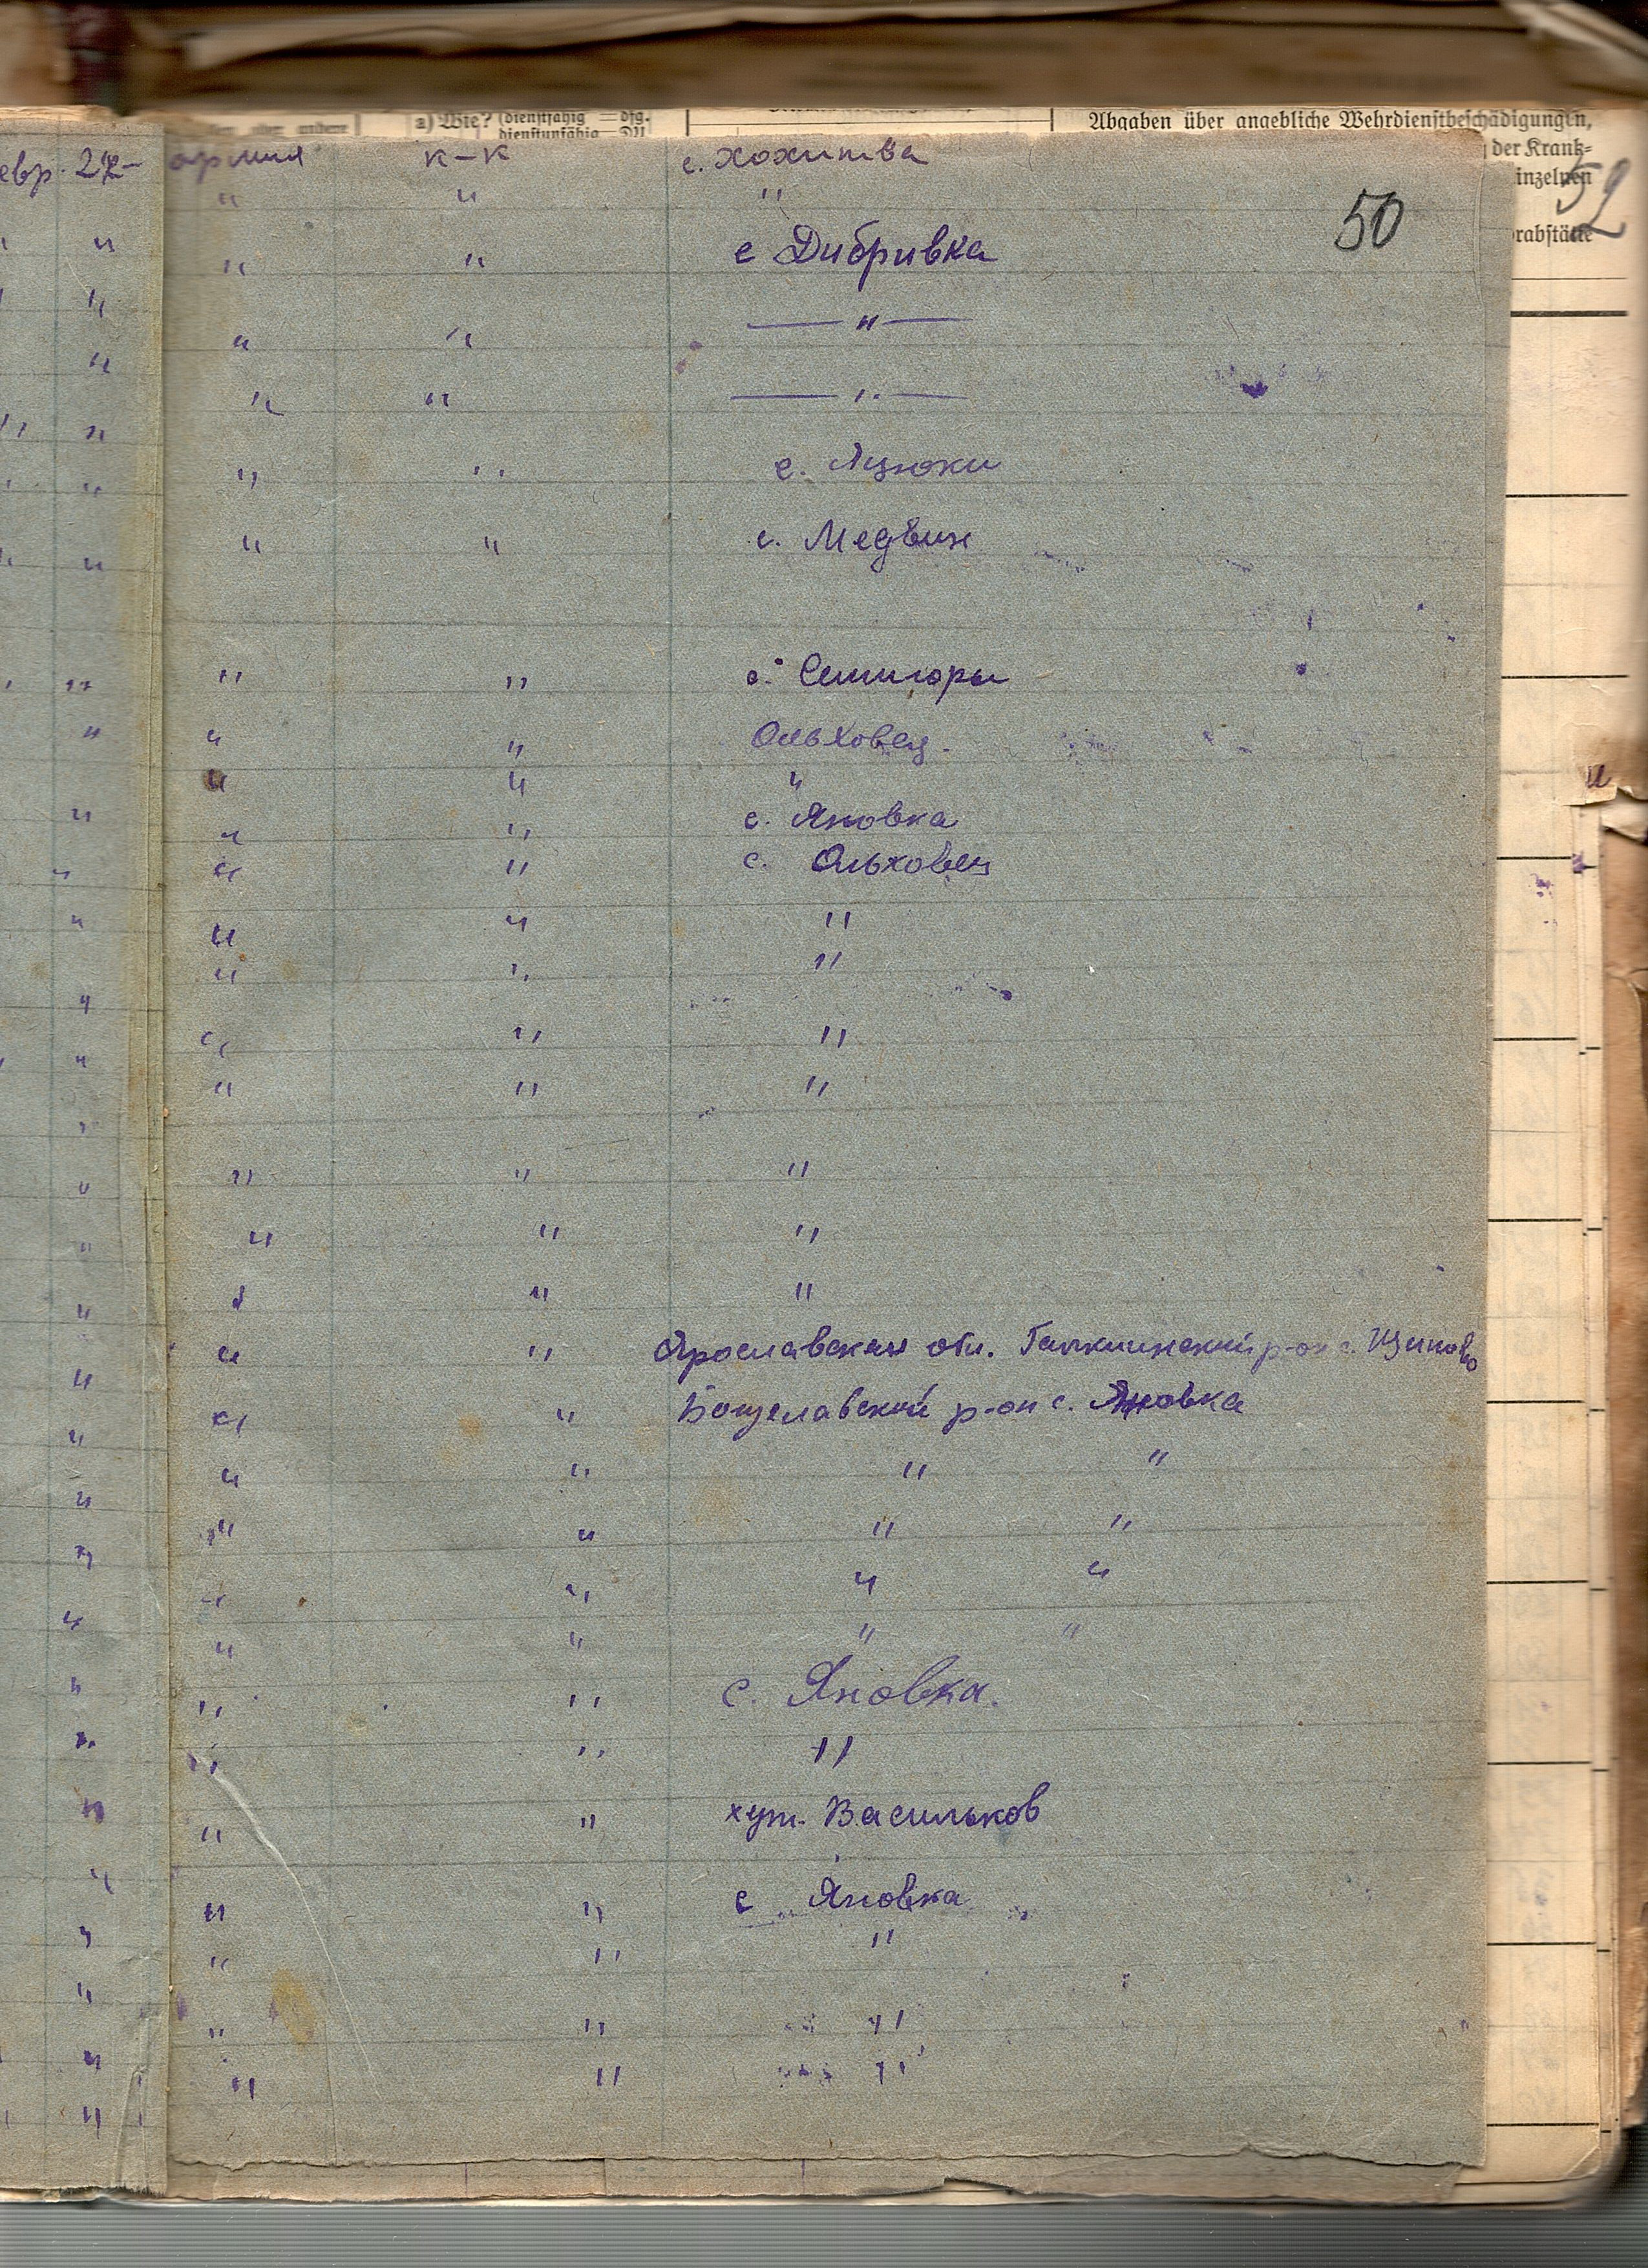 a) Wie? (dienstfähig = dfg.
dienstunfähig = DU
Abgaben über angebliche Wehrdienstbeschädigungen,
der Krank-
inzelnen
rabstätte
52
50
евр. армия к-к с. Хохитва
" " "
" " " с Дибривка
" " " — " —
" " " — " —
" " " с. Яцюки
" " " с. Медвин
" " " с. Семигоры
" " " Ольховец.
" " "
" " " с. Яновка
" " " с. Ольховец
" " " "
" " " "
" " " "
" " " "
" " " "
" " " "
" " " "
" " " Ярославская обл. Галкинский р-он с.
" " " р-он с. Яновка
" " " " "
" " " " "
" " " " "
" " " " "
" " " с. Яновка.
" " " "
" " " хут. Васильков
" " " с Яновка
" " " "
" " " "
" " " "